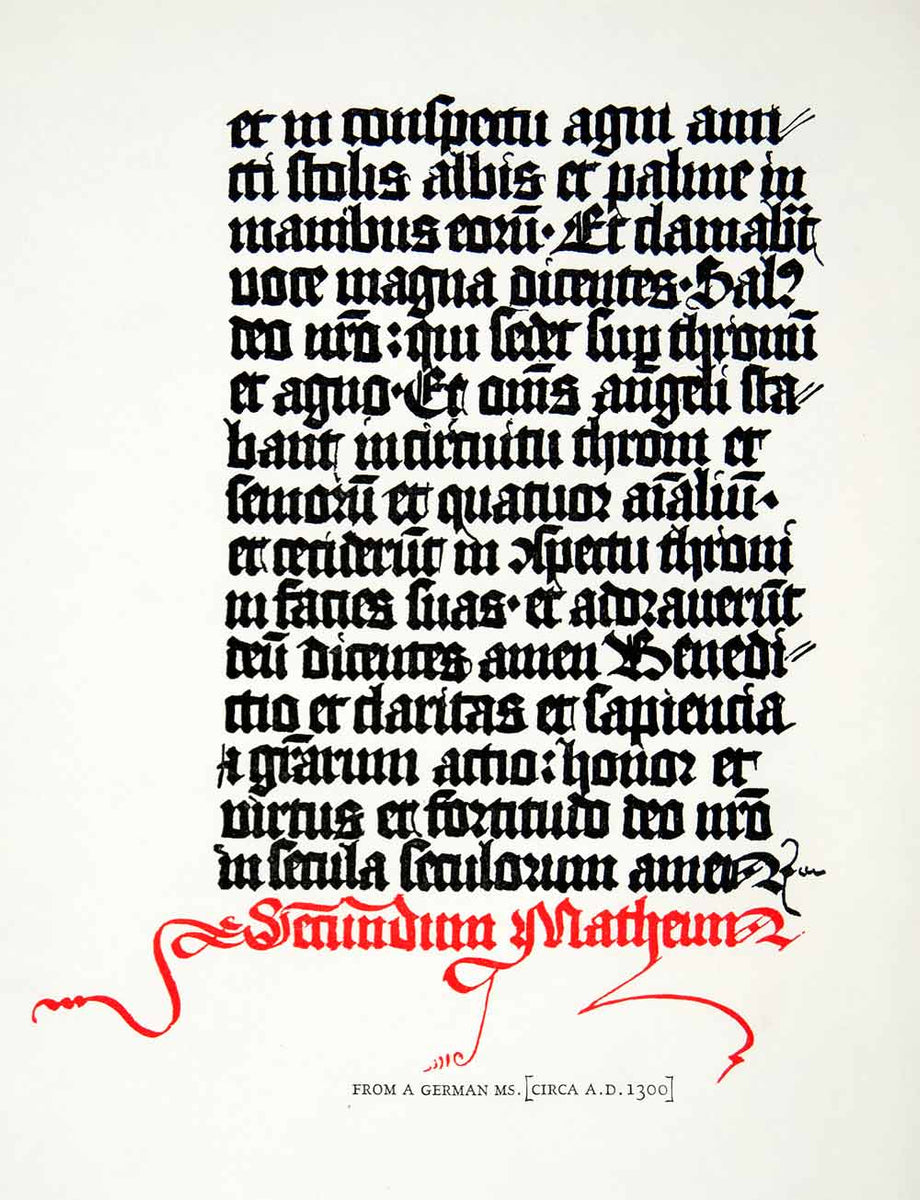 et in conspectu agni ami
cti stolis albis et palme in
manibus eorū· Et clamabāt
voce magna dicentes· Salꝰ
deo nr̄o: qui sedet suꝑ thronū
et agno· Et om̄s angeli sta-
bant in circuitu throni et
seniorū et quatuor aīaliū·
et ceciderūt in ꝯspectu throni
in facies suas· et adorauerūt
deū dicentes amen Benedi-
ctio et claritas et sapiencia
gr̄arum actio: honor et
virtus et fortitudo deo nr̄o
in secula seculorum amen
Secundum Matheum
FROM A GERMAN MS. [CIRCA A.D. 1300]